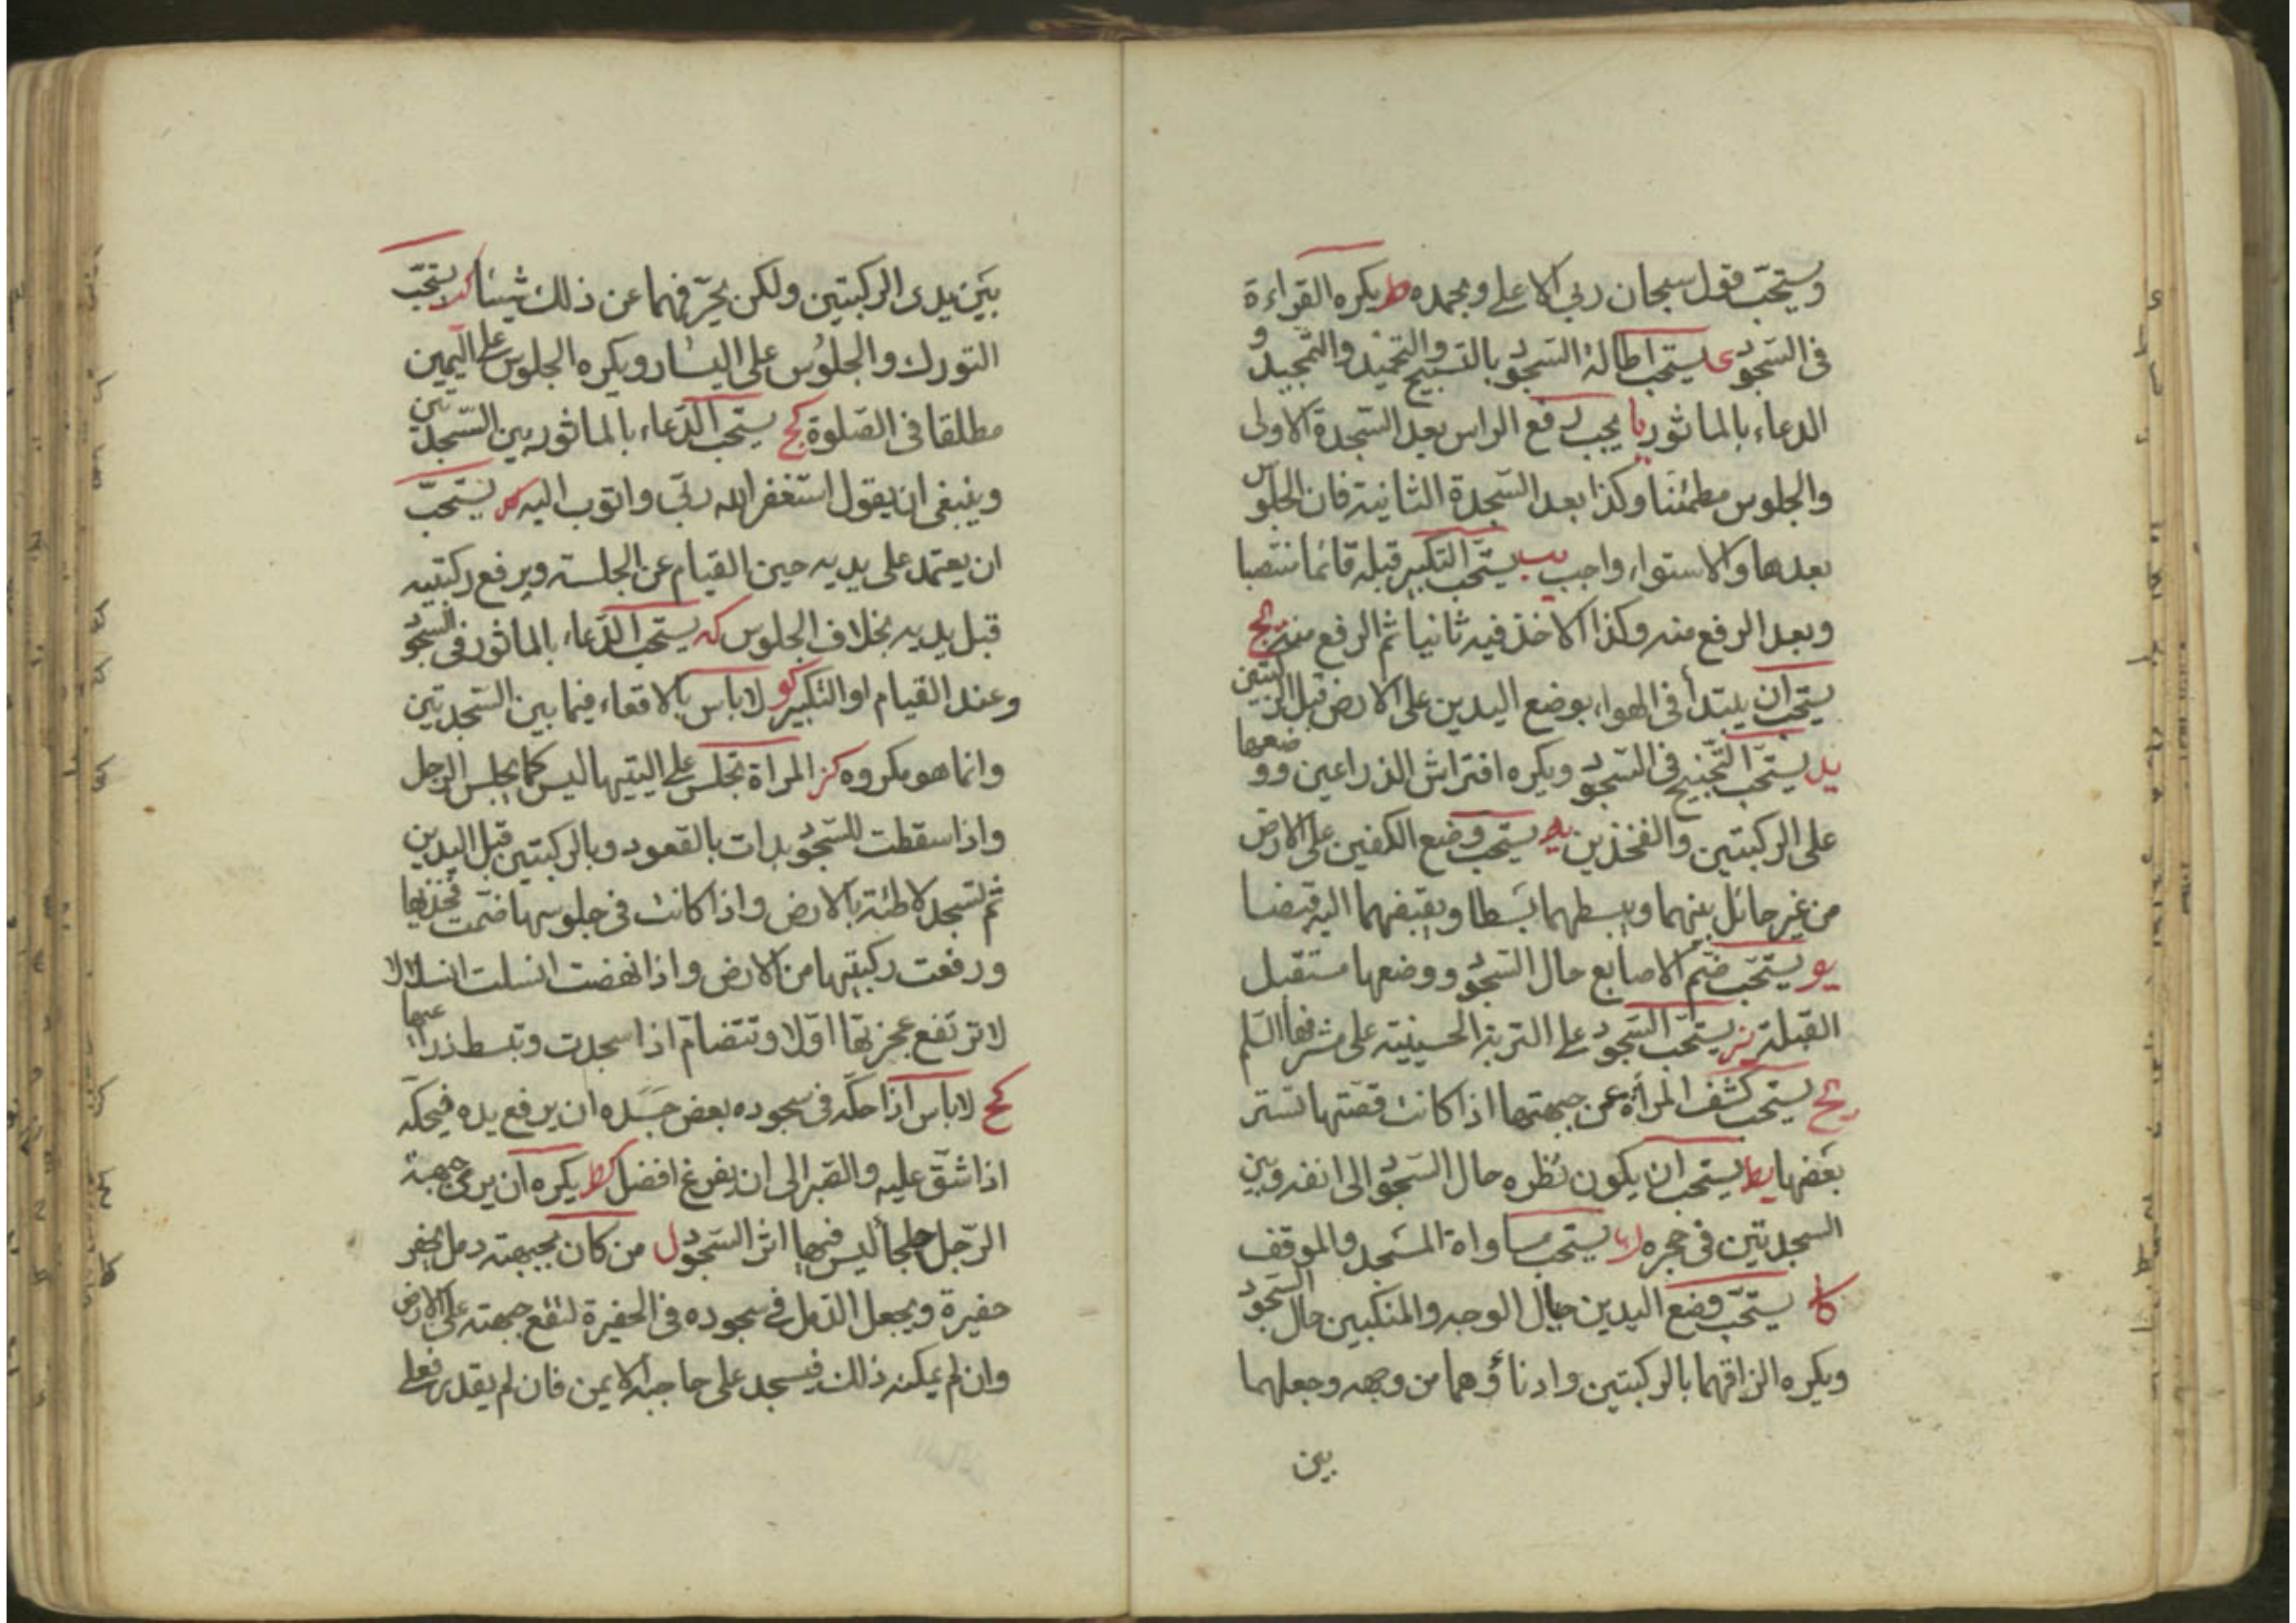 ويستحب قول سبحان ربي الاعلى وبحمده ط يكره القراءة
في السجود ى يستحب اطالة السجود بالتسبيح والتحميد والتمجيد و
الدعاء بالماثور يا يجب رفع الراس بعد السجدة الاولى
والجلوس مطمئنا وكذا بعد السجدة الثانية فان الجلوس
بعدها والاستواء واجب يب يستحب التكبير قبله قائما منتصبا
وبعد الرفع منه وكذا الاخذ فيه ثانيا ثم الرفع منه يج
يستحب ان يبتدأ في الهواء بوضع اليدين على الارض قبل الركبتين
يد يستحب التجنيح في السجود ويكره افتراش الذراعين ووضعها
على الركبتين والفخذين يه يستحب وضع الكفين على الارض
من غير حائل بينهما ويبسطهما بسطا ويقبضهما اليه قبضا
يو يستحب ضم الاصابع حال السجود ووضعها مستقبل
القبلة يز يستحب السجود على التربة الحسينية على مشرفها السلم
يح يستحب كشف المرأة عن جبهتها اذا كانت قصتها تستر
بعضها يط يستحب ان يكون نظره حال السجود الى انفه وبين
السجدتين في حجره ك يستحب مساواة المسجد والموقف
كا يستحب وضع اليدين حيال الوجه والمنكبين حال السجود
ويكره الزاقهما بالركبتين وادناؤهما من وجهه وجعلهما
بين
بين يدى الركبتين ولكن يحرّفهما عن ذلك شيئا كب يستحب
التورك والجلوس على اليسار ويكره الجلوس على اليمين
مطلقا في الصلوة كج يستحب الدعاء بالماثور بين السجدتين
وينبغي ان يقول استغفر الله ربي واتوب اليه كد يستحب
ان يعتمد على يديه حين القيام عن الجلسة ويرفع ركبتيه
قبل يديه بخلاف الجلوس كه يستحب الدعاء بالماثور في السجود
وعند القيام او التكبير كو لاباس بالاقعاء فيما بين السجدتين
وانما هو مكروه كز المراة تجلس على اليتيها ليس كما يجلس الرجل
واذا سقطت للسجود بدات بالقعود وبالركبتين قبل اليدين
ثم تسجد لاطئة بالارض واذا كانت في جلوسها ضمت فخذيها
ورفعت ركبتيها من الارض واذا نهضت انسلت انسلالا
لا ترتفع عجزيتها اولا وتتضام اذا سجدت وتبسط ذراعيها
كح لاباس اذا حكّه في سجوده بعض جسده ان يرفع يده فيحكّه
اذا شق عليه والصبر الى ان يفرغ افضل كط يكره ان يرى جبهة
الرجل جلحا ليس فيها اثر السجود ل من كان بجبهته دمل يحفر
حفيرة ويجعل الدمل في سجوده في الحفيرة لتقع جبهته على الارض
وان لم يمكنه ذلك فيسجد على حاجبه الايمن فان لم يقدر فعلى